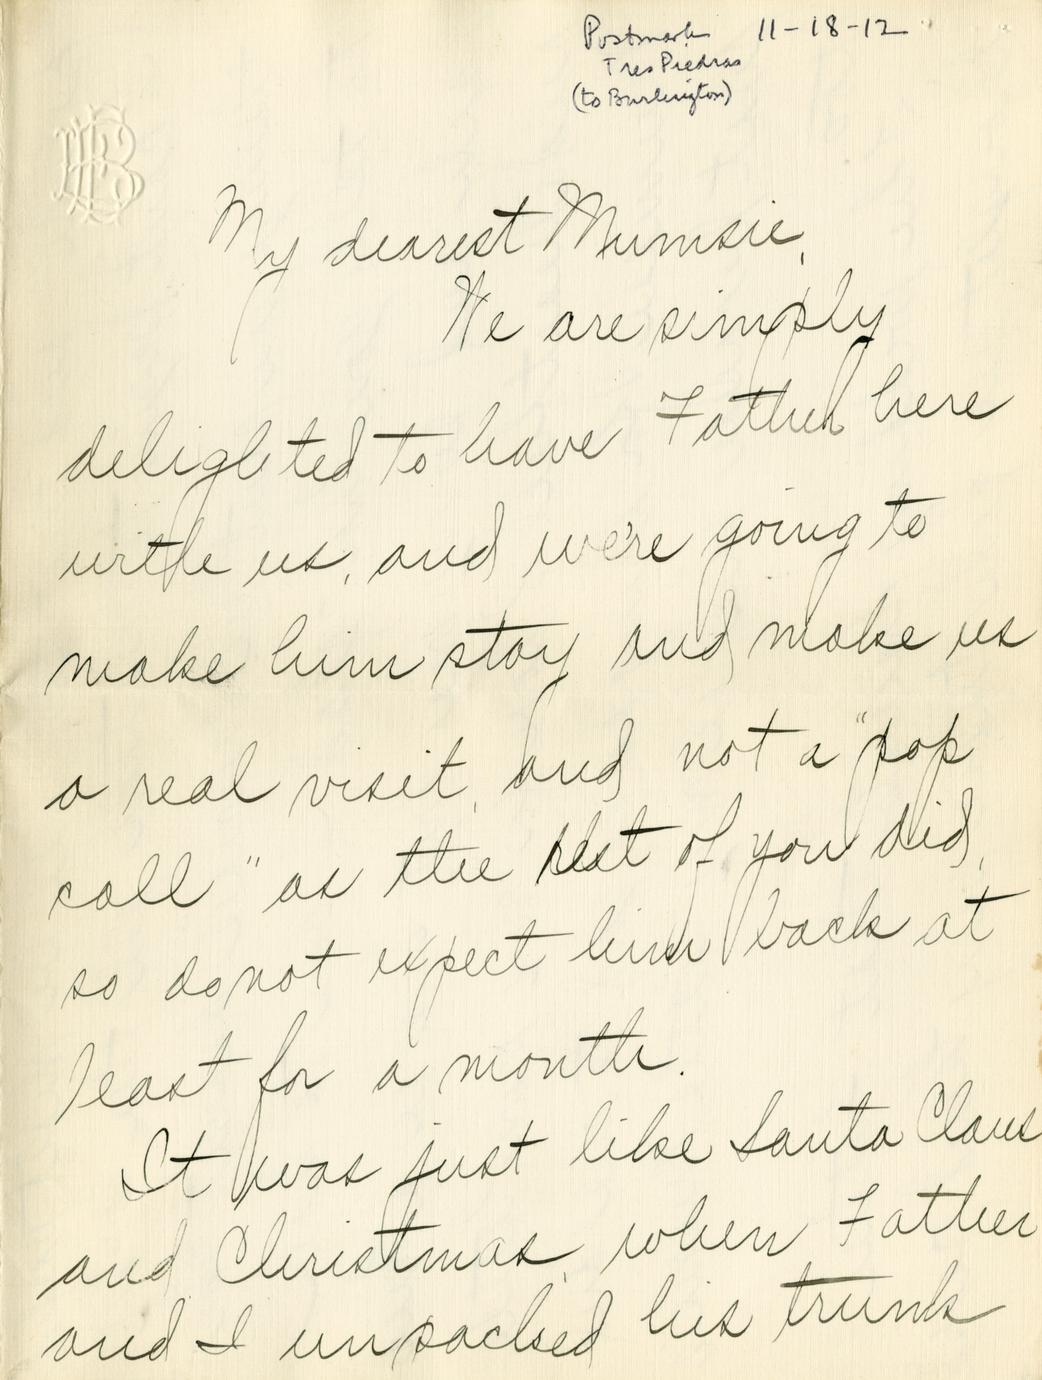 Postmark 11-18-12
Tres Piedras
(to Burlington)
My dearest Mumsie,
We are simply
delighted to have Father here
with us, and we're going to
make him stay and make us
a real visit, and not a "pop
call" as the rest of you did,
so do not expect him back at
least for a month.
It was just like Santa Claus
and Christmas, when Father
and I unpacked his trunk